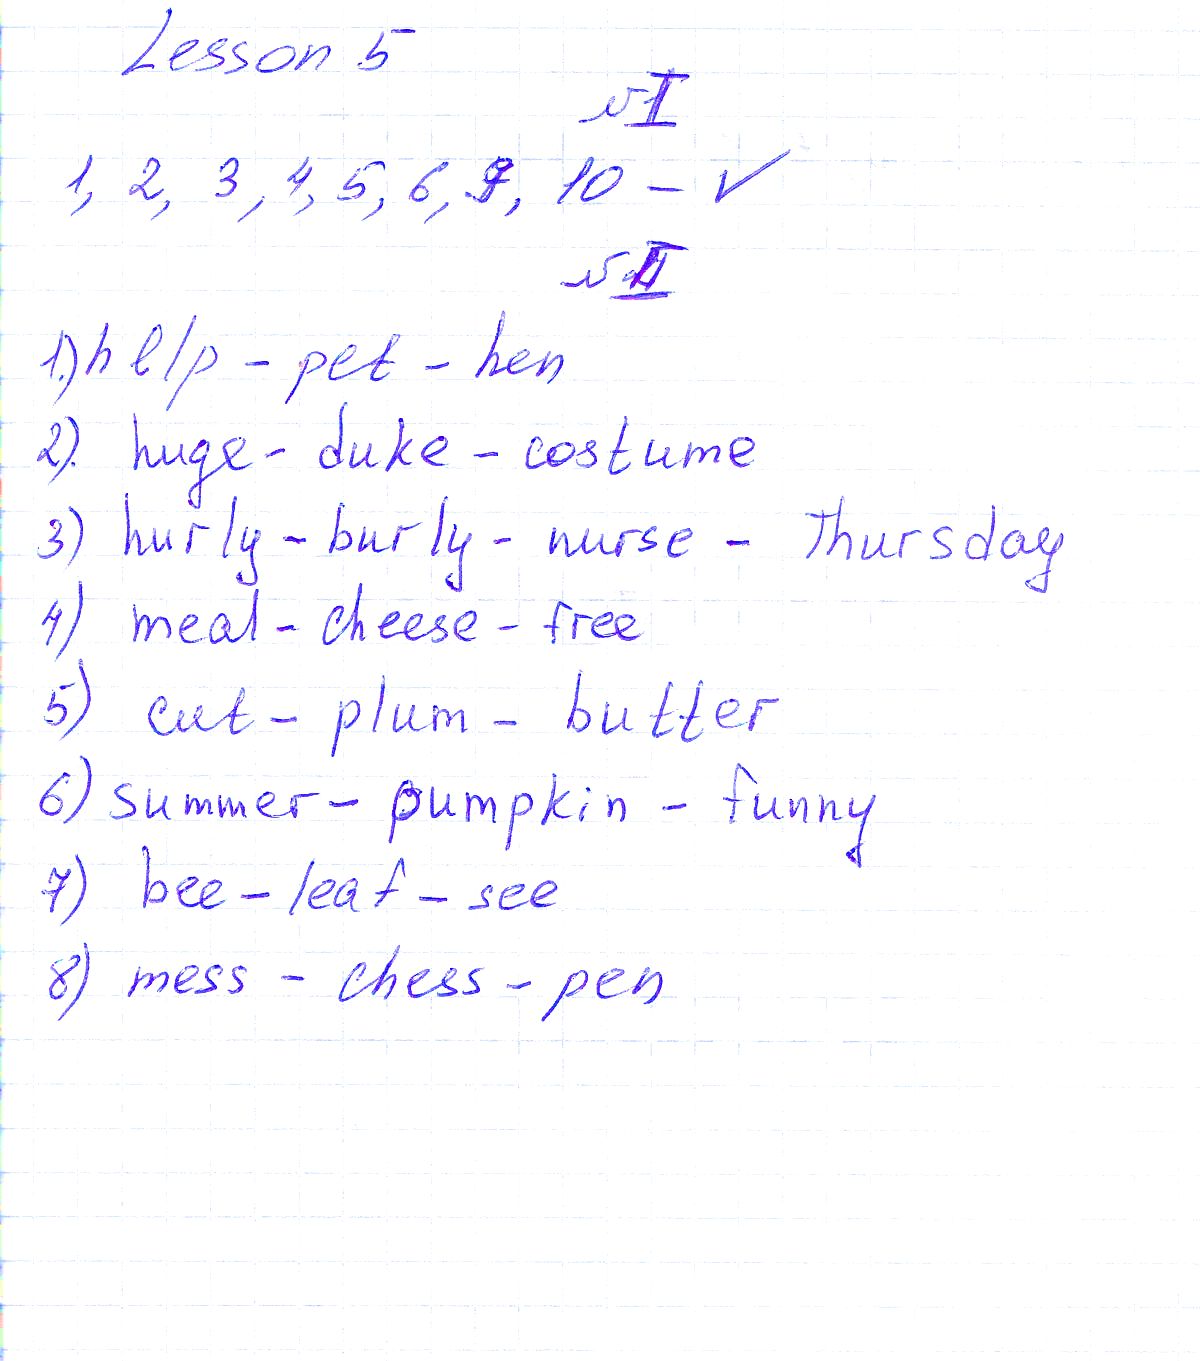 Lesson 5
№ I
1, 2, 3, 4, 5, 6, 9, 10 – ✓
№ II
1.) help – pet – hen
2). huge – duke – costume
3) hurly – burly – nurse – Thursday
4) meal – cheese – free
5) cut – plum – butter
6) summer – pumpkin – funny
7) bee – leaf – see
8) mess – chess – pen